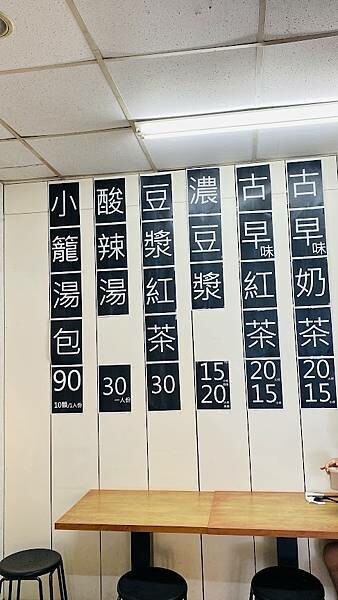 小籠湯包
90
10顆/1人份
酸辣湯
30
一人份
豆漿紅茶
30
濃豆漿
15
20
古早味紅茶
20
15
古早味奶茶
20
15